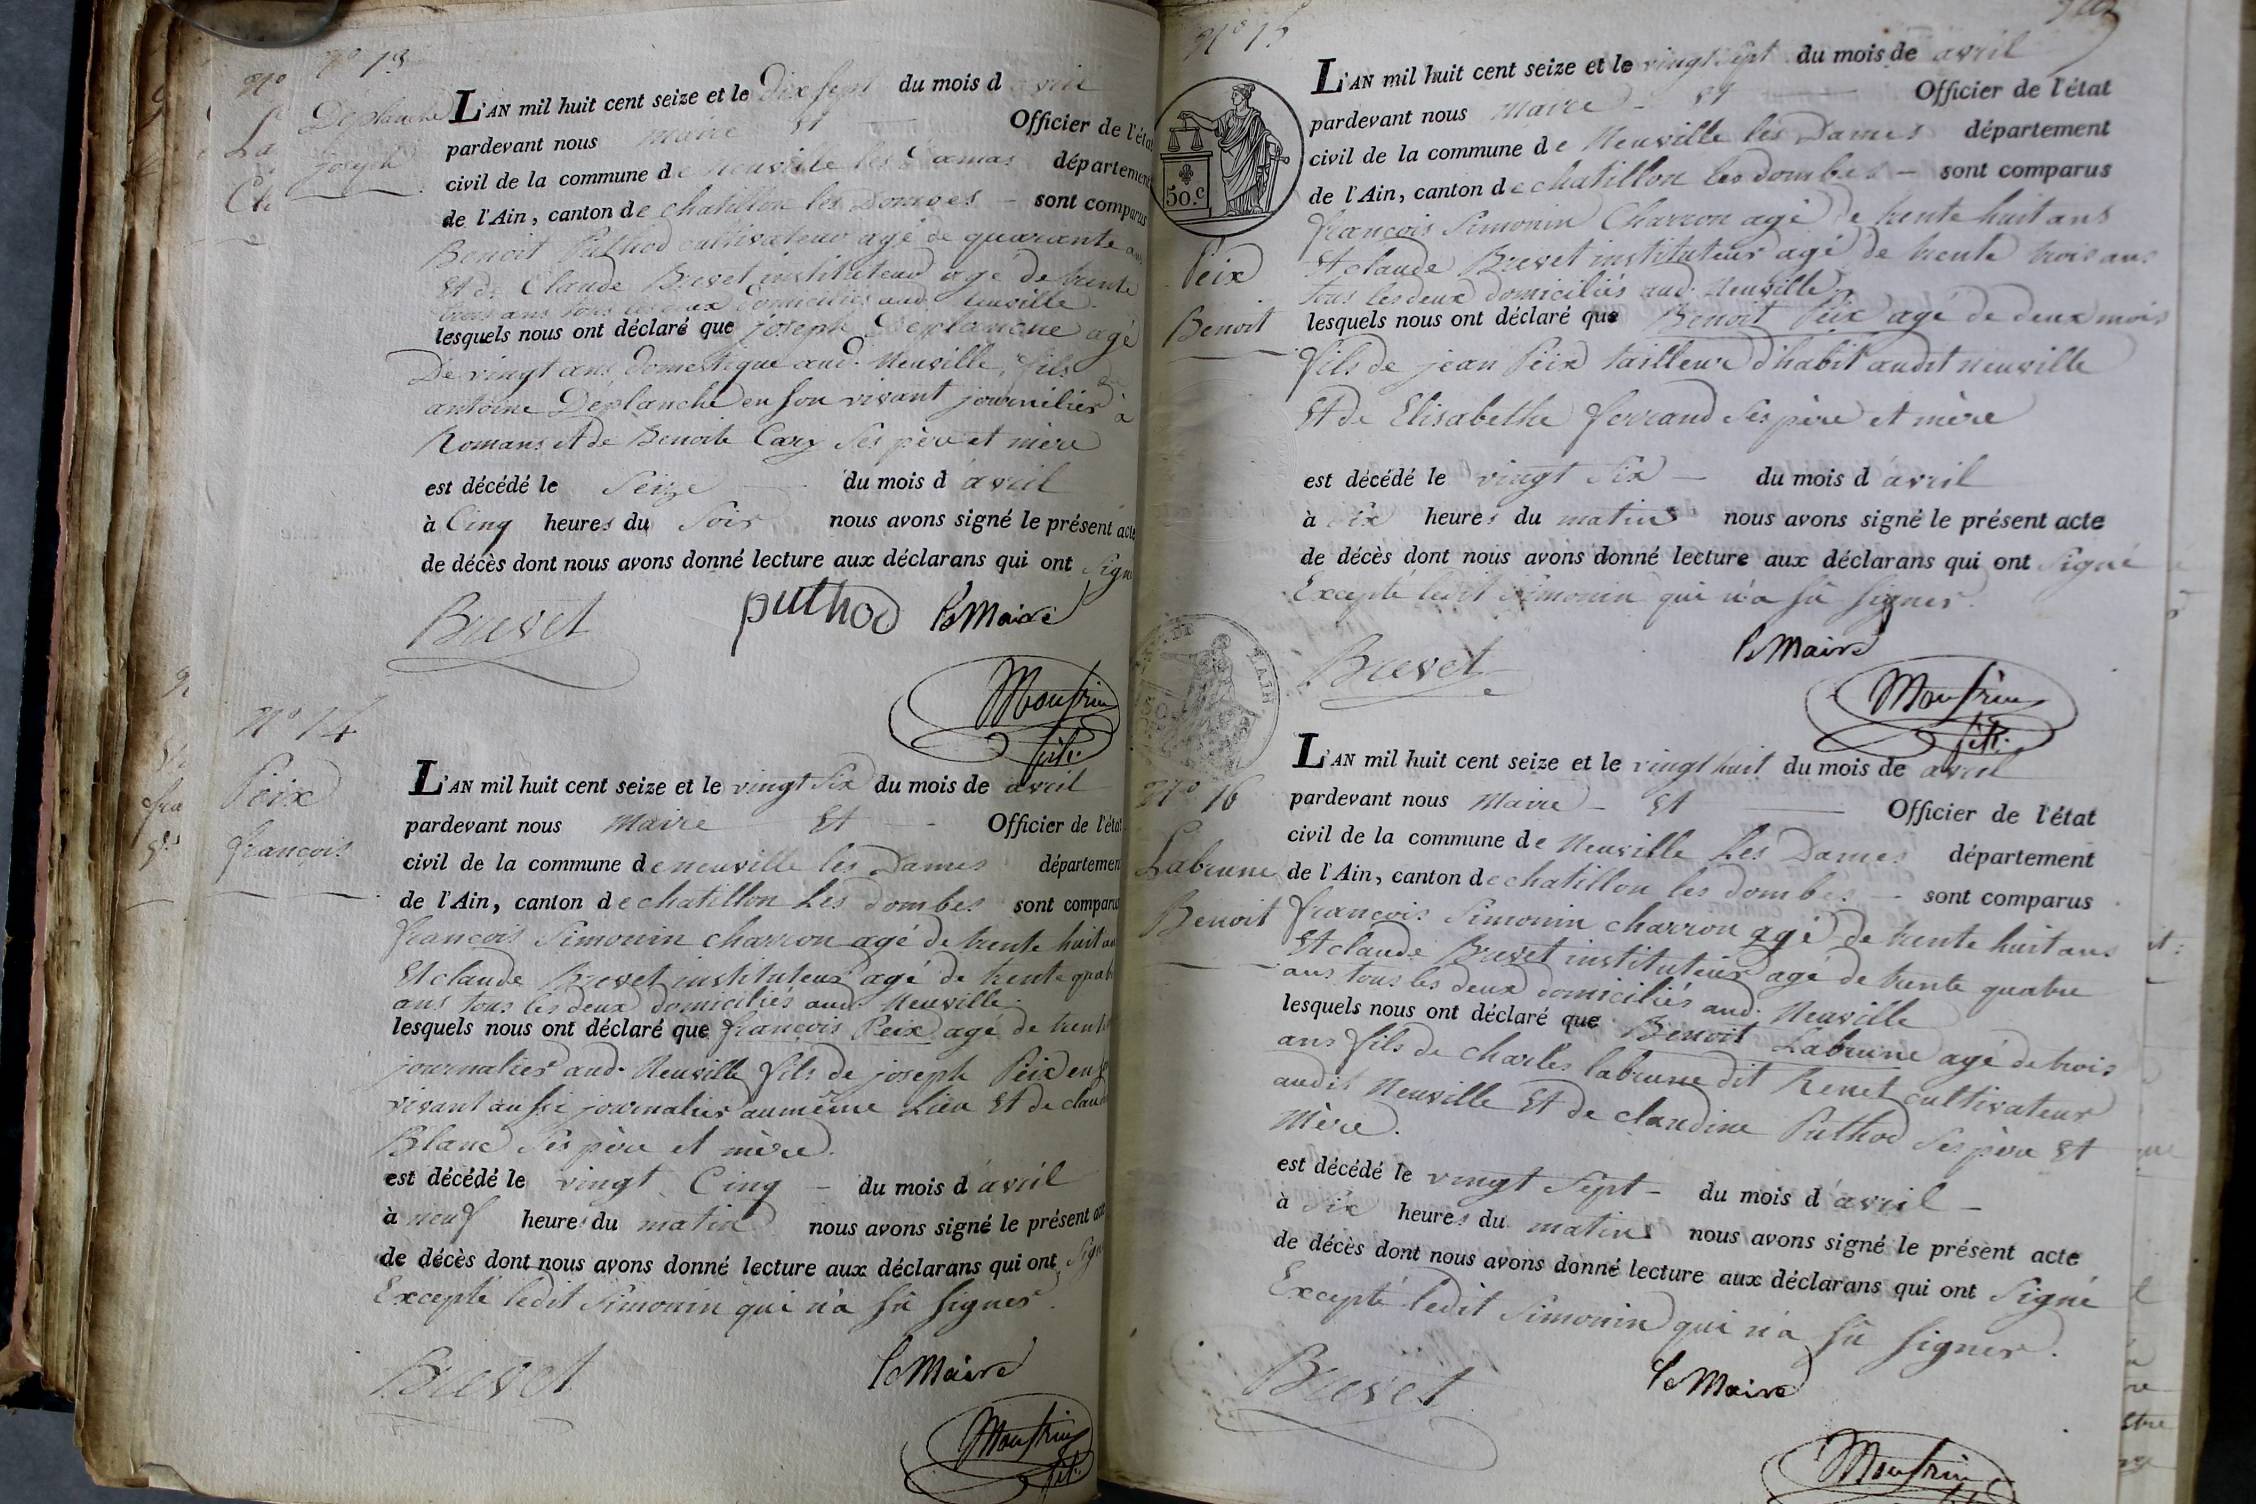 N° 13
Deplanche
Joseph
L'AN mil huit cent seize et le dix sept du mois d avril
pardevant nous maire et — Officier de l'état
civil de la commune de neuville les Dames département
de l'Ain, canton de chatillon les Dombes — sont comparus
Benoit Puthod cultivateur agé de quarante ans
Et de Claude Brevet instituteur agé de trente
trois ans tous les deux domiciliés aud. neuville
lesquels nous ont déclaré que joseph Deplanche agé
De vingt ans domestique aud. Neuville, fils de
antoine Deplanche en son vivant journalier à
Romans et de Benoite Cary ses père et mère
est décédé le Seize — du mois d'avril
à Cinq heures du Soir nous avons signé le présent acte
de décès dont nous avons donné lecture aux déclarans qui ont signé
Brevet puthod le Maire
Monfrin
fils
N° 14
Peix
françois
L'AN mil huit cent seize et le vingt six du mois de avril
pardevant nous maire et — Officier de l'état
civil de la commune de neuville les Dames département
de l'Ain, canton de chatillon les dombes sont comparus
françois Simonin charron agé de trente huit ans
Et claude Brevet instituteur agé de trente quatre
ans tous les deux domiciliés aud. Neuville.
lesquels nous ont déclaré que françois Peix agé de trente
journalier aud. Neuville fils de joseph Peix en son
vivant aussi journalier au même Lieu Et de claudine
Blanc ses père et mère.
est décédé le vingt Cinq — du mois d'avril
à neuf heures du matin nous avons signé le présent acte
de décès dont nous avons donné lecture aux déclarans qui ont signé
Excepté ledit Simonin qui n'a sû signer.
Brevet le Maire
Monfrin
fils
N° 15
50.c
Peix
Benoit
L'AN mil huit cent seize et le vingt sept du mois de avril
pardevant nous maire — et — Officier de l'état
civil de la commune de Neuville les Dames département
de l'Ain, canton de chatillon les dombes — sont comparus
françois Simonin Charron agé de trente huit ans
Et claude Brevet instituteur agé de trente trois ans
tous les deux domiciliés aud. Neuville
lesquels nous ont déclaré que Benoit Peix agé de deux mois
fils de jean Peix tailleur d'habit audit neuville
Et de Elisabethe ferrand Ses père et mère
est décédé le vingt Six — du mois d'avril
à six heures du matin nous avons signé le présent acte
de décès dont nous avons donné lecture aux déclarans qui ont signé
Excepté ledit Simonin qui n'a sû signer.
Brevet le Maire
Monfrin
fils
DE L'AIN
N° 16
Labrune
Benoit
L'AN mil huit cent seize et le vingt huit du mois de avril
pardevant nous Maire — et — Officier de l'état
civil de la commune de Neuville Les Dames département
de l'Ain, canton de chatillon les dombes — sont comparus
françois Simonin charron agé de trente huit ans
Et claude Brevet instituteur agé de trente quatre
ans tous les deux domiciliés aud. Neuville
lesquels nous ont déclaré que Benoit Labrune agé de trois
ans fils de charles labrune dit Renet cultivateur
audit Neuville Et de claudine Puthod Ses père Et
Mère.
est décédé le vingt Sept — du mois d'avril —
à six heures du matin nous avons signé le présent acte
de décès dont nous avons donné lecture aux déclarans qui ont Signé
Excepté ledit Simonin qui n'a sû signer.
Brevet le Maire
Monfrin